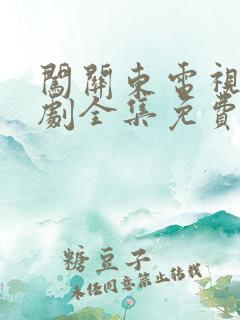 闖關東電視
劇全集免費
糖豆子
未任同意禁止转载